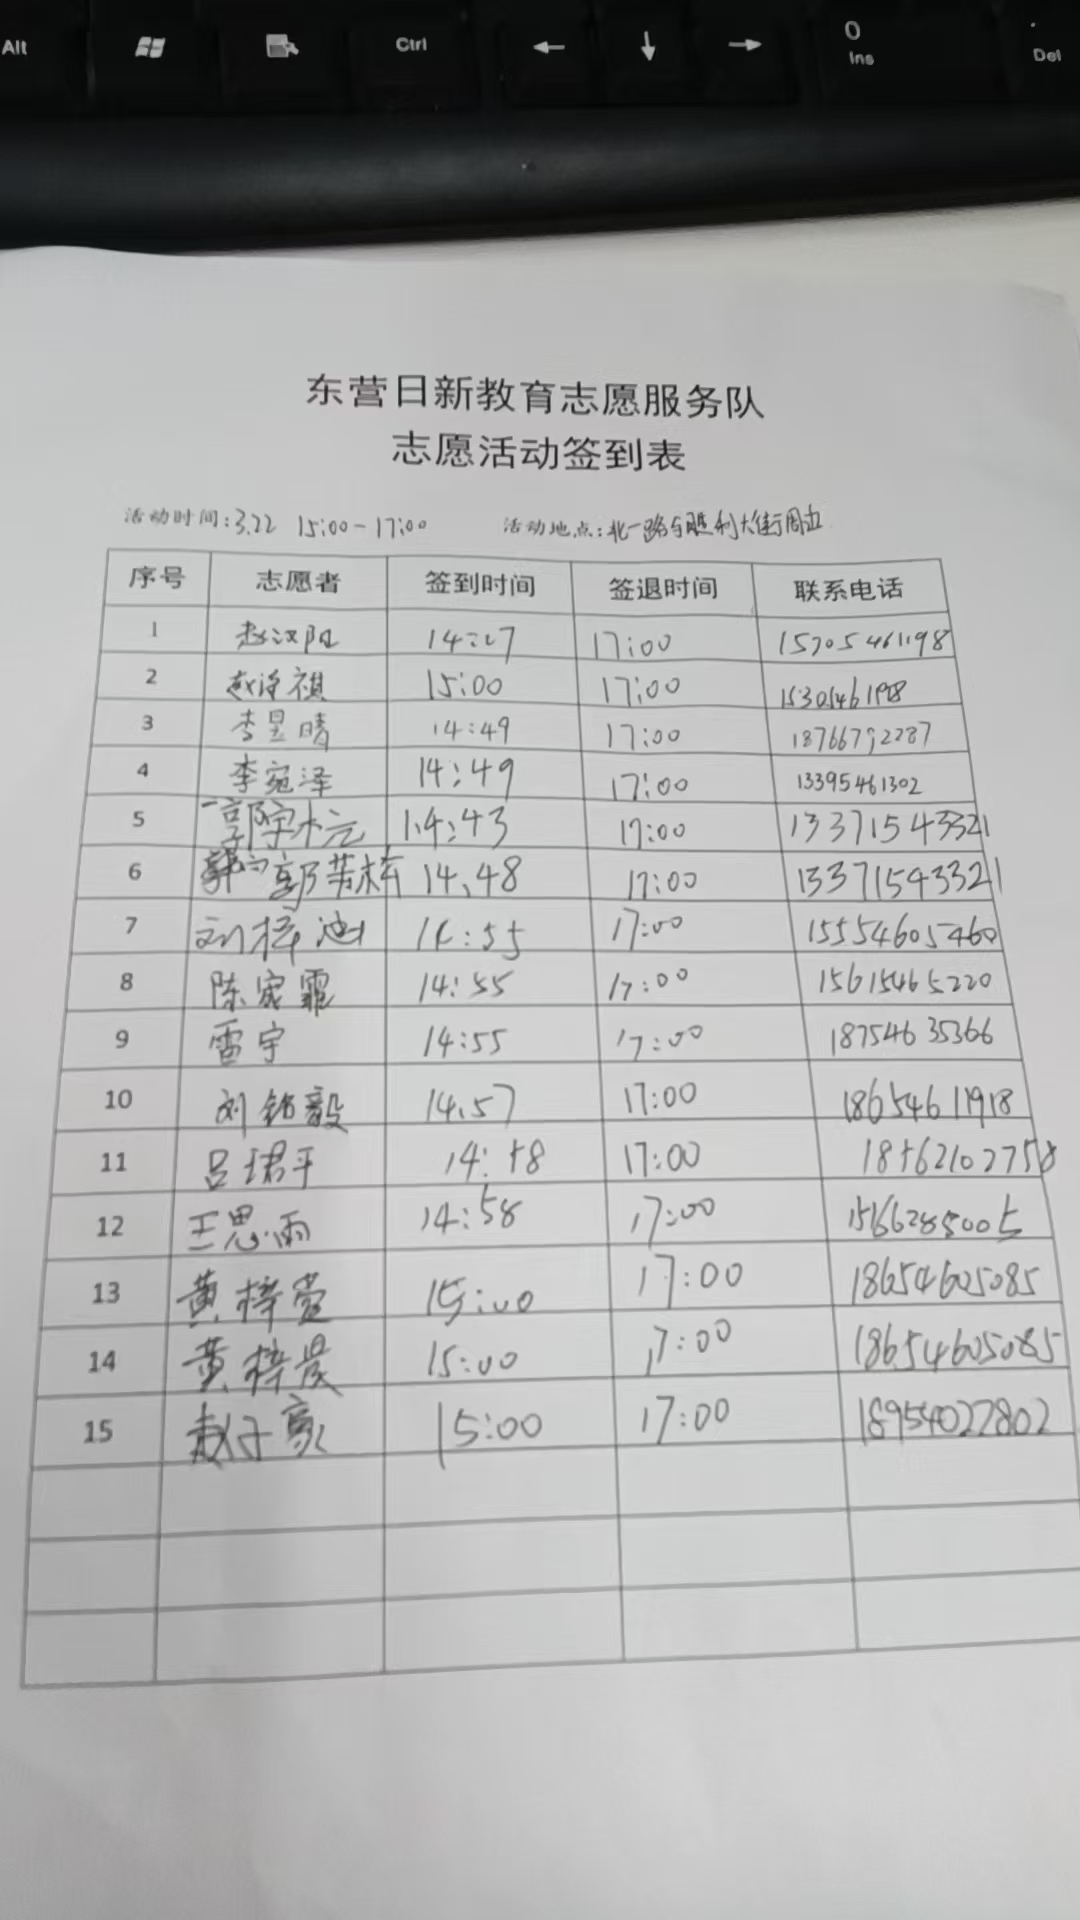 Alt Ctrl ← ↓ → 0 Ins . Del
东营日新教育志愿服务队
志愿活动签到表
活动时间:3.22 15:00-17:00 活动地点:北一路与胜利大街周边
序号 志愿者 签到时间 签退时间 联系电话
1 赵汉阳 17:00
2 赵 祺 15:00 17:00
3 李昱晴 14:49 17:00
4 李宛泽 14:49 17:00 13395461302
5 14:43 17:00 13371543321
6 郭 14.48 17:00 13371543321
7 刘梓池 17:00 15554605460
8 陈家霏 14:55 17:00 15615465220
9 雷宇 14:55 17:00 18754635366
10 刘铭毅 14.57 17:00 18654611918
11 吕珺平 14:58 17:00 18562102758
12 王思雨 14:58 17:00 15666285005
13 黄梓萱 15:00 17:00 18654605085
14 黄梓晟 15:00 17:00 18654605085
15 赵子豪 15:00 17:00 18954027802